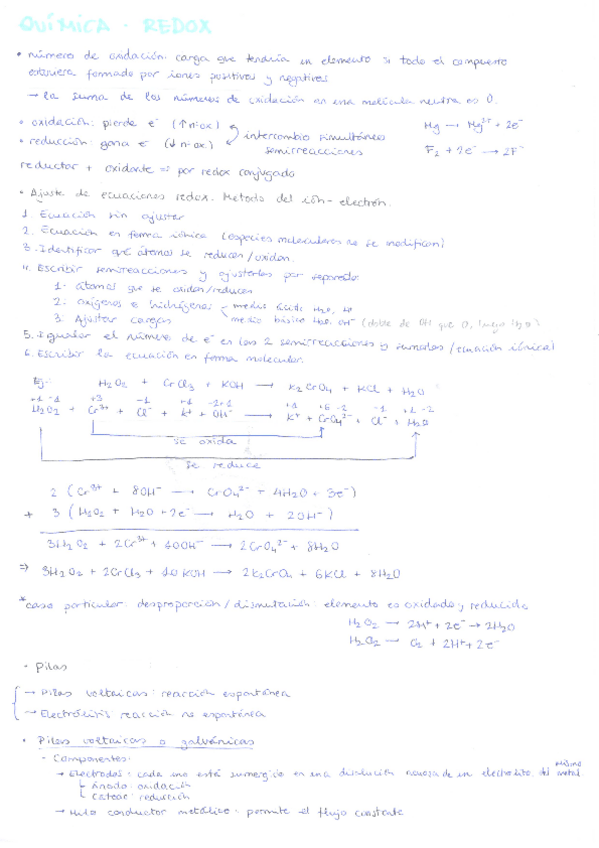 QUÍMICA · REDOX
• número de oxidación: carga que tendría un elemento si todo el compuesto
estuviera formado por iones positivos y negativos
→ la suma de los números de oxidación en una molécula neutra es 0.
• oxidación: pierde e⁻ (↑n·ox) Mg → Mg²⁺ + 2e⁻
• reducción: gana e⁻ (↓n·ox) intercambio simultáneo
semirreacciones F₂ + 2e⁻ → 2F⁻
reductor + oxidante => par redox conjugado
• Ajuste de ecuaciones redox. Metodo del ión-electrón.
1. Ecuación sin ajustar
2. Ecuación en forma iónica (especies moleculares no se modifican)
3. Identificar qué átomos se reducen/oxidan.
4. Escribir semirreacciones y ajustarlas por separado
1. átomos que se oxidan/reducen
2. oxígenos e hidrógenos - medio ácido H₂O, H⁺
3. Ajustar cargas - medio básico H₂O, OH⁻ (doble de OH que O, luego H₂O)
5. Igualar el número de e⁻ en las 2 semirreacciones y sumarlas (ecuación iónica)
6. Escribir la ecuación en forma molecular.
Ej: H₂O₂ + CrCl₃ + KOH → K₂CrO₄ + KCl + H₂O
+1 -1 +3 -1 +1 -2+1 +1 +6 -2 -1 +1 -2
H₂O₂ + Cr³⁺ + Cl⁻ + K⁺ + OH⁻ → K⁺ + CrO₄²⁻ + Cl⁻ + H₂O
se oxida
se reduce
2 (Cr³⁺ + 8OH⁻ → CrO₄²⁻ + 4H₂O + 3e⁻)
+ 3 (H₂O₂ + H₂O + 2e⁻ → H₂O + 2OH⁻)
3H₂O₂ + 2Cr³⁺ + 10OH⁻ → 2CrO₄²⁻ + 8H₂O
=> 3H₂O₂ + 2CrCl₃ + 10KOH → 2K₂CrO₄ + 6KCl + 8H₂O
*caso particular: desproporción/dismutación: elemento es oxidado y reducido
H₂O₂ → 2H⁺ + 2e⁻ → 2H₂O
H₂O₂ → O₂ + 2H⁺ + 2e⁻
· Pilas
→ Pilas voltaicas: reacción espontánea
→ Electrólisis: reacción no espontánea
· Pilas voltaicas o galvánicas
· Componentes:
→ Electrodos: cada uno está sumergido en una disolución acuosa de un electrolito del mismo metal
ánodo: oxidación
cátodo: reducción
→ Hilo conductor metálico: permite el flujo constante